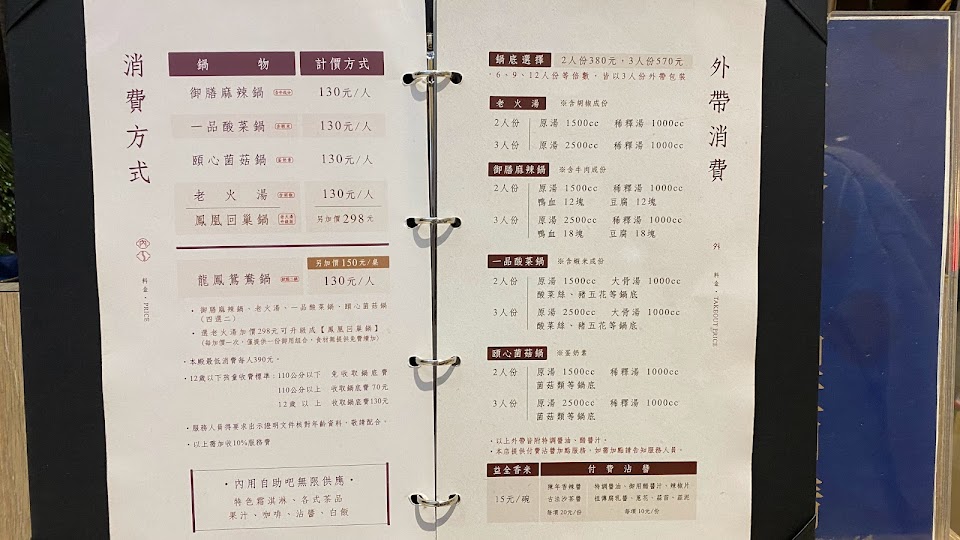 消費方式
內
料金・PRICE
鍋物 計價方式
御膳麻辣鍋 130元/人
一品酸菜鍋 130元/人
頤心菌菇鍋 130元/人
老火湯 130元/人
鳳凰回巢鍋 另加價298元
另加價150元/桌
龍鳳鴛鴦鍋 130元/人
・御膳麻辣鍋、老火湯、一品酸菜鍋、頤心菌菇鍋
(四選二)
・選老火湯加價298元可升級成【鳳凰回巢鍋】
(每加價一次,僅提供一份御用組合,食材無提供免費續加)
・本殿最低消費每人390元。
・12歲以下孩童收費標準:110公分以下 免收取鍋底費
110公分以上 收取鍋底費70元
12歲以上 收取鍋底費130元
・服務人員得要求出示證明文件核對年齡資料,敬請配合。
・以上需加收10%服務費
・內用自助吧無限供應・
特色霜淇淋、各式茶品
果汁、咖啡、沾醬、白飯
外帶消費
外
料金・TAKEOUT PRICE
鍋底選擇 2人份380元,3人份570元
・6、9、12人份等倍數,皆以3人份外帶包裝
老火湯 ※含胡椒成份
2人份 原湯 1500cc 稀釋湯 1000cc
3人份 原湯 2500cc 稀釋湯 1000cc
御膳麻辣鍋 ※含牛肉成份
2人份 原湯 1500cc 稀釋湯 1000cc
鴨血 12塊 豆腐 12塊
3人份 原湯 2500cc 稀釋湯 1000cc
鴨血 18塊 豆腐 18塊
一品酸菜鍋 ※含蝦米成份
2人份 原湯 1500cc 大骨湯 1000cc
酸菜絲、豬五花等鍋底
3人份 原湯 2500cc 大骨湯 1000cc
酸菜絲、豬五花等鍋底
頤心菌菇鍋 ※蛋奶素
2人份 原湯 1500cc 稀釋湯 1000cc
菌菇類等鍋底
3人份 原湯 2500cc 稀釋湯 1000cc
菌菇類等鍋底
・以上外帶皆附特調醬油、醋醬汁。
・本店提供付費沾醬加點服務,如需加點請告知服務人員。
益全香米 付費沾醬
15元/碗
陳年香辣醬
古法沙茶醬
每項20元/份
特調醬油、御用醋醬汁、辣椒片
祖傳腐乳醬、蔥花、蒜苗、蒜泥
每項10元/份